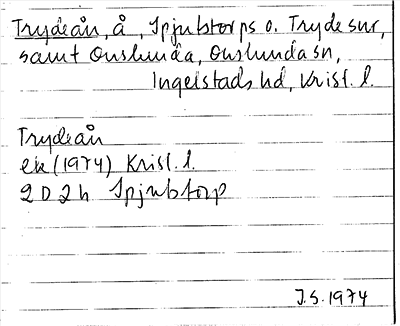 Trydeån, å, Spjutstorps o. Tryde snr,
samt Onslunda, Onslunda sn,
Ingelstads hd, Krist. l.
Trydeån
ek (1974) Krist. l.
2 D 2 h Spjutstorp
J.S. 1974